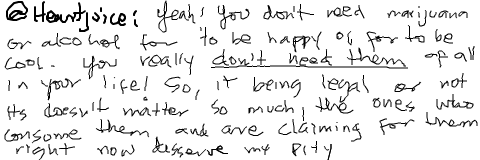 @Heartjoice: Yeah! You don't need marijuana
or alcohol for to be happy or for to be
cool. You really don't need them at all
in your life! So, it being legal or not
its doesn't matter so much, the ones who
consume them and are claiming for them
right now desserve my pity